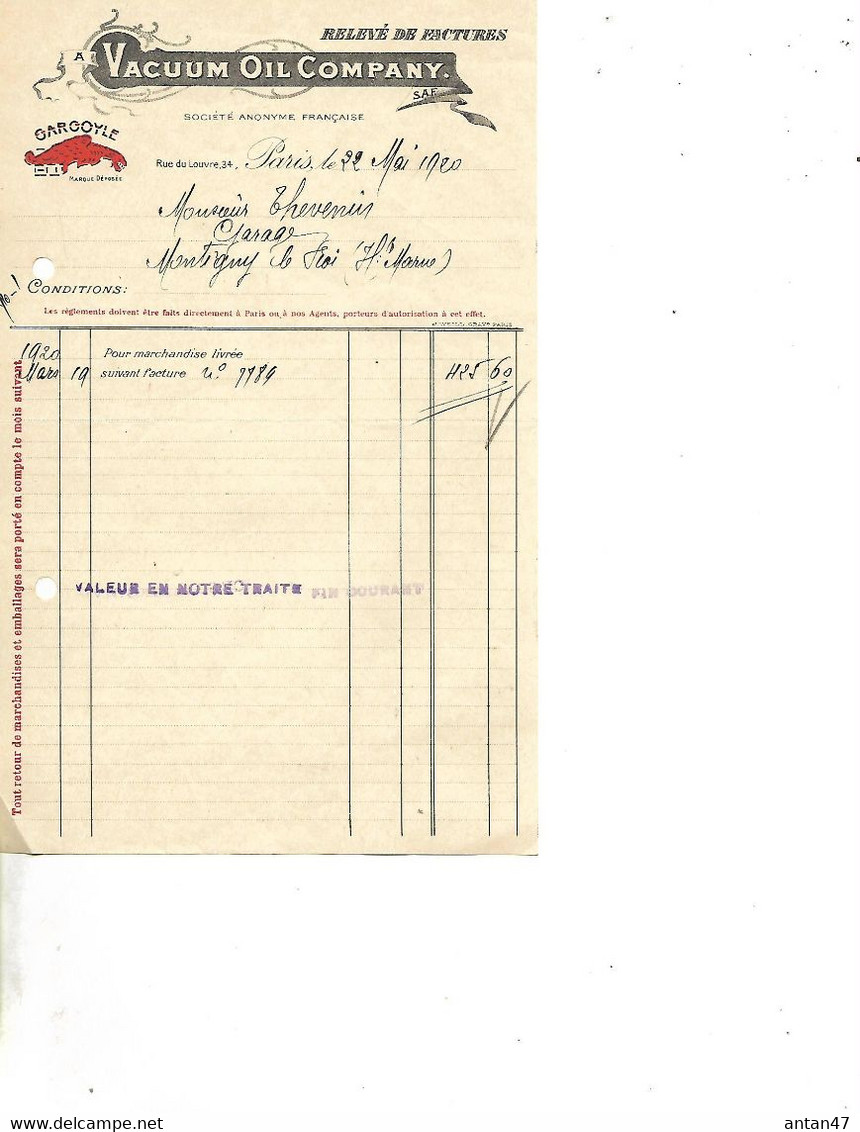 RELEVÉ DE FACTURES
A VACUUM OIL COMPANY.
S.A.F.
SOCIÉTÉ ANONYME FRANÇAISE
GARGOYLE
MARQUE DÉPOSÉE
Rue du Louvre, 34, Paris, le 22 Mai 1920
Monsieur Thevenin
Garage
Montigny le Roi (Hte Marne)
CONDITIONS:
Les règlements doivent être faits directement à Paris ou à nos Agents, porteurs d'autorisation à cet effet.
1920 Pour marchandise livrée
Mars 19 suivant facture No 7789 425 60
Tout retour de marchandises et emballages sera porté en compte le mois suivant
VALEUR EN NOTRE TRAITE FIN COURANT
antan47